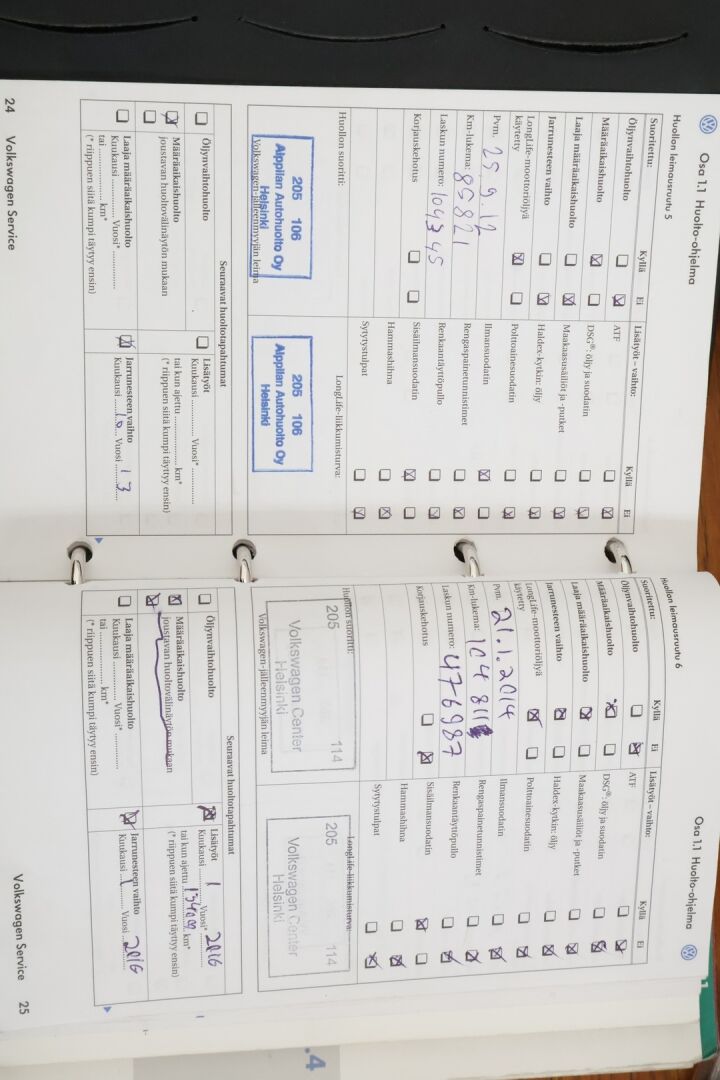 Osa 1.1 Huolto-ohjelma
Huollon leimausruutu 5
Suoritettu: Kyllä Ei
Öljynvaihtohuolto
Määräaikaishuolto
Laaja määräaikaishuolto
Jarrunesteen vaihto
LongLife-moottoriöljyä
käytetty
Pvm. 25.9.12
Km-lukema: 85821
Laskun numero: 104345
Korjauskehotus
Lisätyöt – vaihto: Kyllä Ei
ATF
DSG®: öljy ja suodatin
Maakaasusäiliöt ja -putket
Haldex-kytkin: öljy
Polttoainesuodatin
Ilmansuodatin
Rengaspainetunnistimet
Renkaantäyttöpullo
Sisäilmansuodatin
Hammashihna
Sytytystulpat
Huollon suoritti:
205 106
Alppilan Autohuolto Oy
Helsinki
Volkswagen-jälleenmyyjän leima
LongLife-liikkumisturva:
205 106
Alppilan Autohuolto Oy
Helsinki
Seuraavat huoltotapahtumat
Öljynvaihtohuolto
Määräaikaishuolto
joustavan huoltovälinäytön mukaan
Laaja määräaikaishuolto
Kuukausi ............ Vuosi* ............
tai ................ km*
(* riippuen siitä kumpi täyttyy ensin)
Lisätyöt
Kuukausi ............ Vuosi* ............
tai kun ajettu ................ km*
(* riippuen siitä kumpi täyttyy ensin)
Jarrunesteen vaihto
Kuukausi 10 Vuosi 13
24 Volkswagen Service
Osa 1.1 Huolto-ohjelma
Huollon leimausruutu 6
Suoritettu: Kyllä Ei
Öljynvaihtohuolto
Määräaikaishuolto
Laaja määräaikaishuolto
Jarrunesteen vaihto
LongLife-moottoriöljyä
käytetty
Pvm. 21.1.2014
Km-lukema: 104811
Laskun numero: 476987
Korjauskehotus
Lisätyöt – vaihto: Kyllä Ei
ATF
DSG®: öljy ja suodatin
Maakaasusäiliöt ja -putket
Haldex-kytkin: öljy
Polttoainesuodatin
Ilmansuodatin
Rengaspainetunnistimet
Renkaantäyttöpullo
Sisäilmansuodatin
Hammashihna
Sytytystulpat
Huollon suoritti:
205 114
Volkswagen Center
Helsinki
Volkswagen-jälleenmyyjän leima
LongLife-liikkumisturva:
205 114
Volkswagen Center
Helsinki
Seuraavat huoltotapahtumat
Öljynvaihtohuolto
Määräaikaishuolto
joustavan huoltovälinäytön mukaan
Laaja määräaikaishuolto
Kuukausi ............ Vuosi* ............
tai ................ km*
(* riippuen siitä kumpi täyttyy ensin)
Lisätyöt
Kuukausi 1 Vuosi* 2016
tai kun ajettu 134000 km*
(* riippuen siitä kumpi täyttyy ensin)
Jarrunesteen vaihto
Kuukausi 1 Vuosi 2016
Volkswagen Service 25
.4